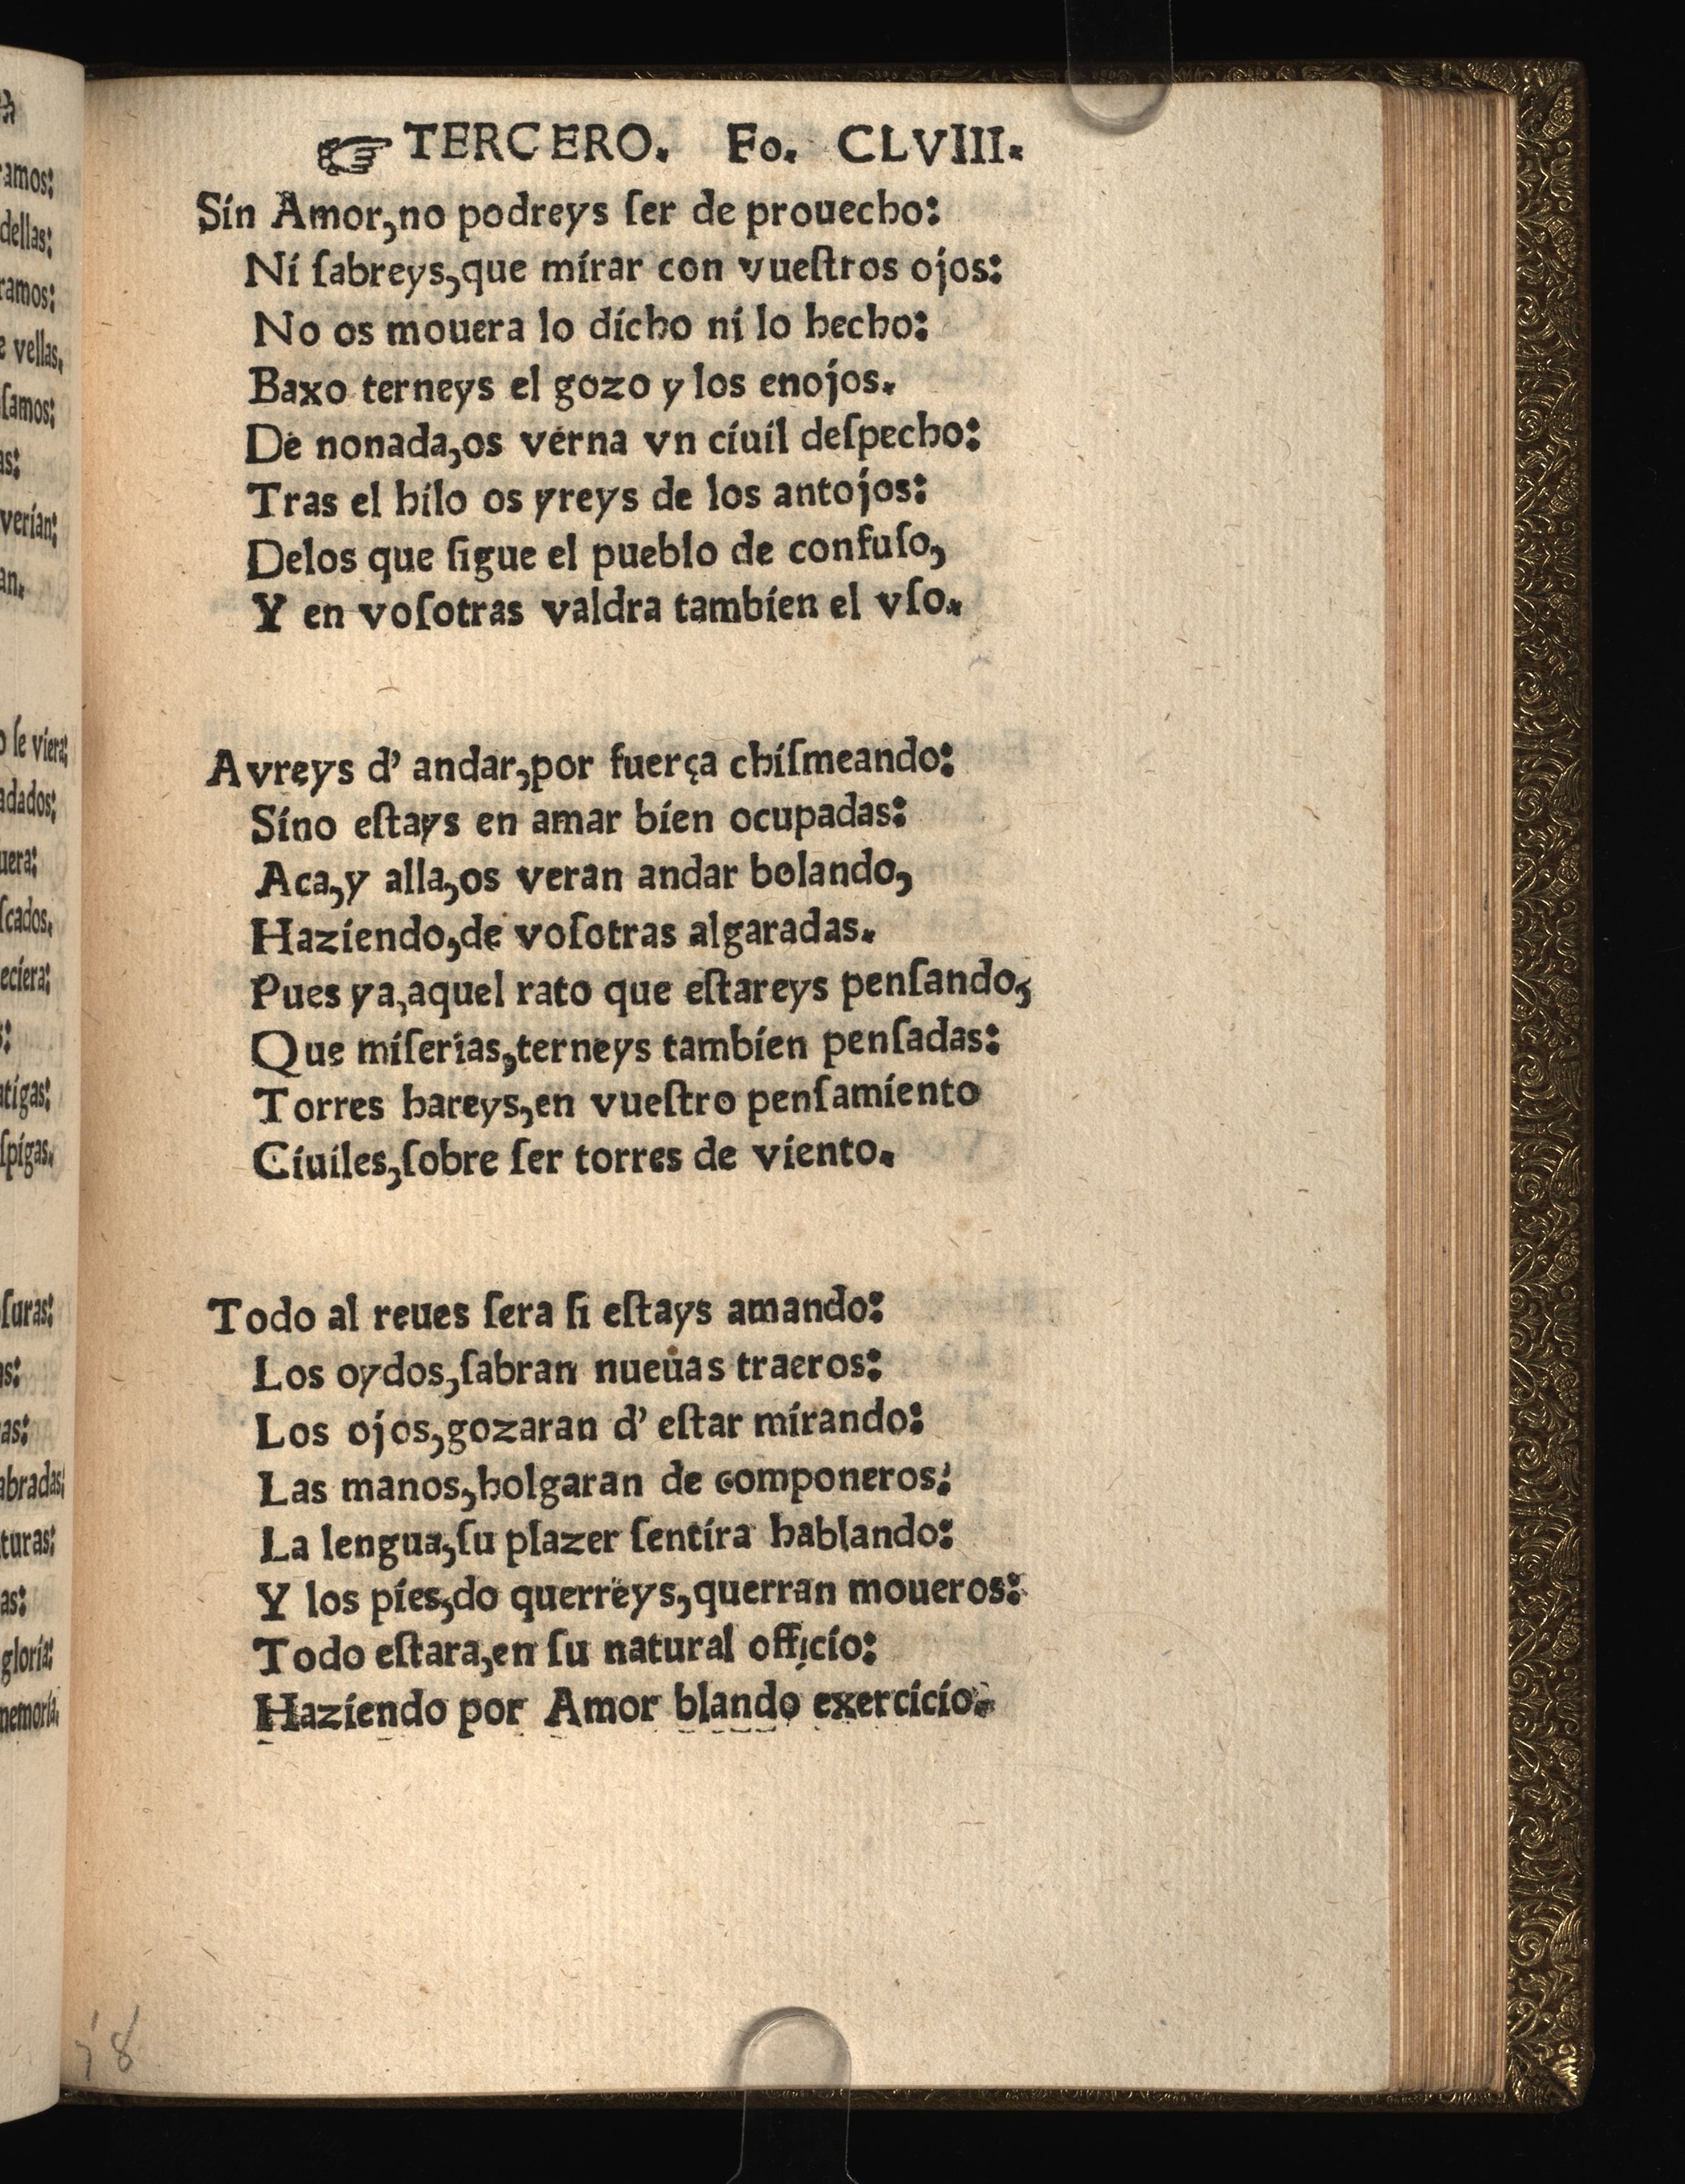 ☞ TERCERO. Fo. CLVIII.
Sin Amor,no podreys ſer de prouecho:
Ni ſabreys,que mirar con vueſtros ojos:
No os mouera lo dicho ni lo hecho:
Baxo terneys el gozo y los enojos.
De nonada,os verna vn ciuil deſpecho:
Tras el hilo os yreys de los antojos:
Delos que ſigue el pueblo de confuſo,
Y en voſotras valdra tambien el vſo.
Avreys d' andar,por fuerça chiſmeando:
Sino eſtays en amar bien ocupadas:
Aca,y alla,os veran andar bolando,
Haziendo,de voſotras algaradas.
Pues ya,aquel rato que eſtareys penſando,
Que miſerias,terneys tambien penſadas:
Torres hareys,en vueſtro penſamiento
Ciuiles,ſobre ſer torres de viento.
Todo al reues ſera ſi eſtays amando:
Los oydos,ſabran nueuas traeros:
Los ojos,gozaran d' eſtar mirando:
Las manos,holgaran de componeros:
La lengua,ſu plazer ſentira hablando:
Y los pies,do querreys,querran moueros:
Todo eſtara,en ſu natural officio:
Haziendo por Amor blando exercicio.